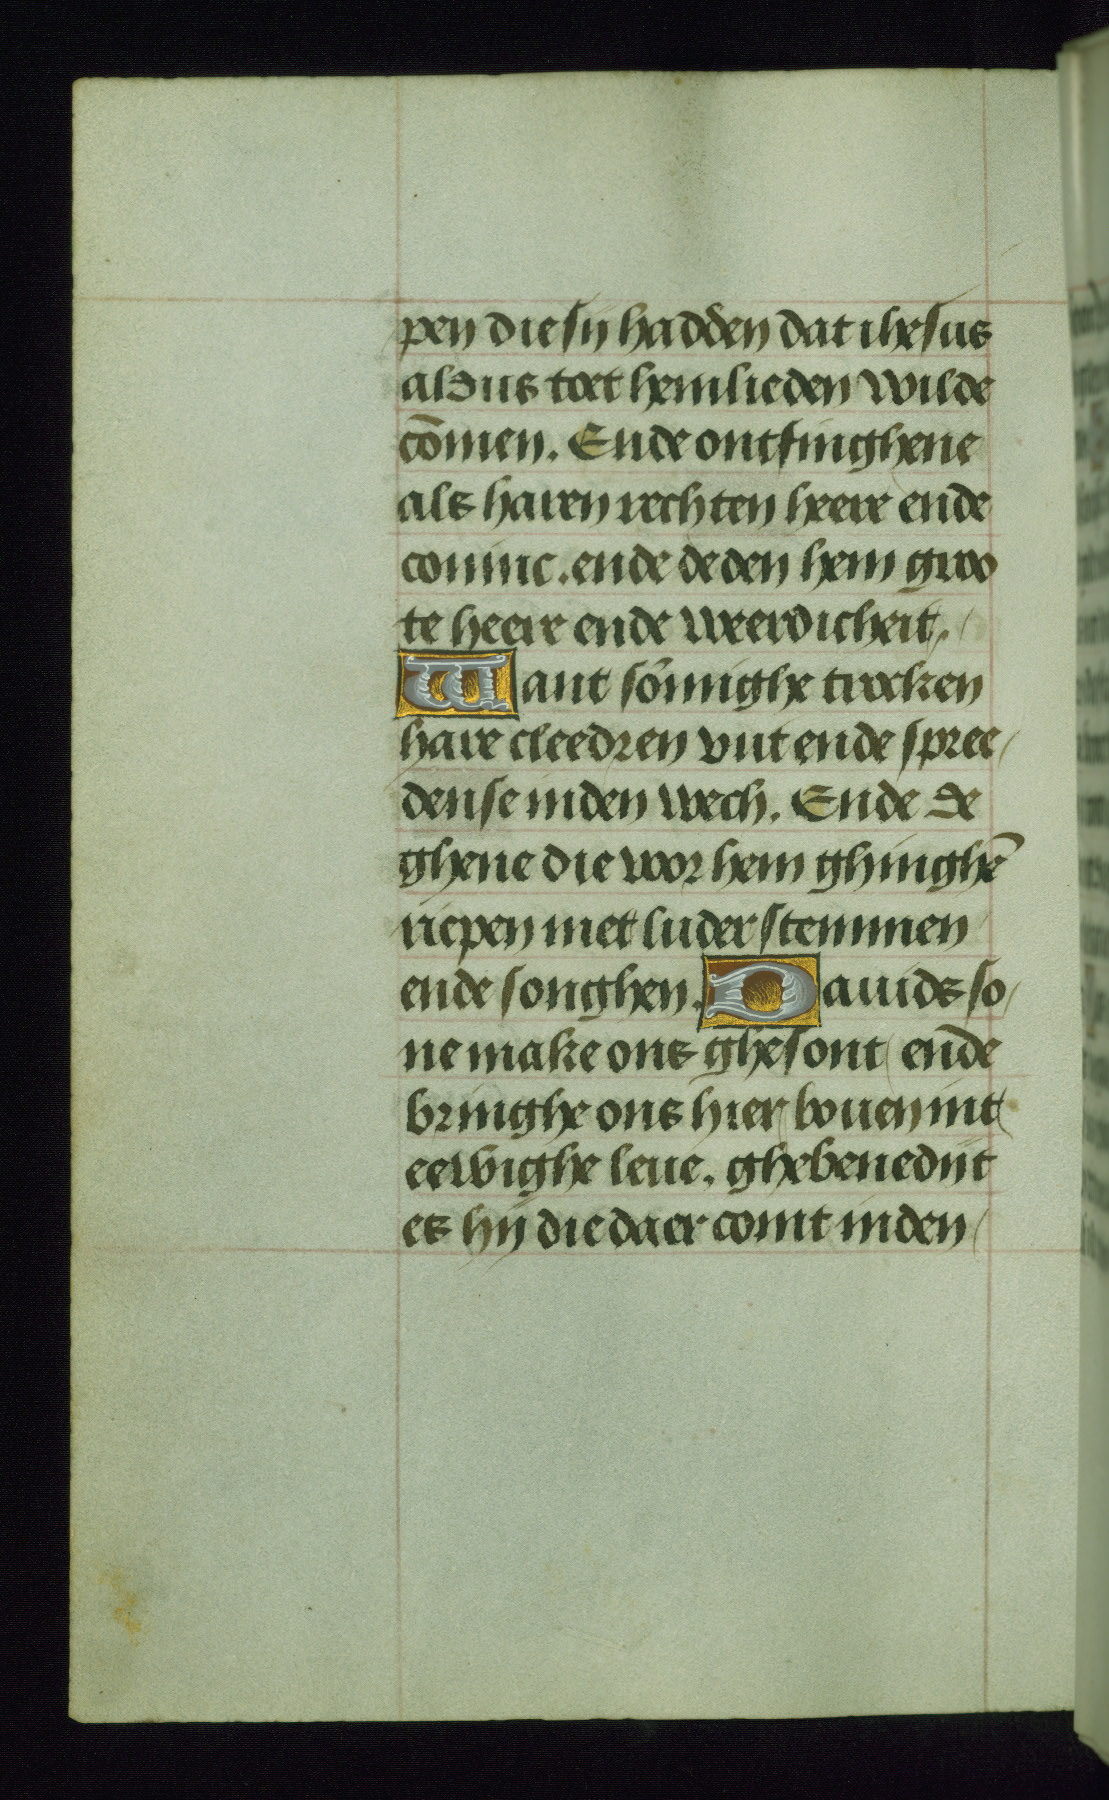 pen die sij hadden dat ihesus
aldus toet hemlieden wilde
cōmen. Ende ontfinghene
als haren rechten heere ende
coninc. ende deden hem groo
te heere ende weerdicheit.
Want sōmighe trocken
hare cleedren vut ende spree
dense inden wech. Ende de
ghene die voor hem ghinghē
riepen met luder stemmen
ende songhen. Dauids so
ne make ons ghesont ende
bringhe ons hier bouen int
eewighe leue. ghebenedijt
es hij die daer comt inden